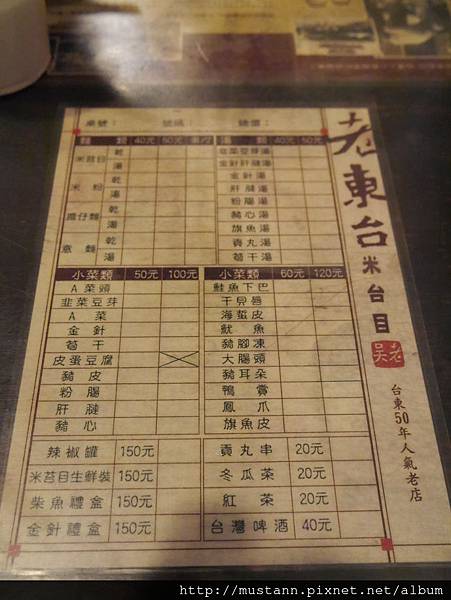 桌號： 號碼： 總價：
麵類 40元 50元
米苔目 乾
湯
米粉 乾
湯
擔仔麵 乾
湯
意麵 乾
湯
湯類 40元 50元
韭菜豆芽湯
金針肝腱湯
金針湯
肝腱湯
粉腸湯
豬心湯
旗魚湯
貢丸湯
筍干湯
小菜類 50元 100元
A菜頭
韭菜豆芽
A菜
金針
筍干
皮蛋豆腐
豬皮
粉腸
肝腱
豬心
小菜類 60元 120元
鮭魚下巴
干貝唇
海蜇皮
魷魚
豬腳凍
大腸頭
豬耳朵
鴨賞
鳳爪
旗魚皮
辣椒罐 150元
米苔目生鮮裝 150元
柴魚禮盒 150元
金針禮盒 150元
貢丸串 20元
冬瓜茶 20元
紅茶 20元
台灣啤酒 40元
老東台米台目
老吳
台東50年人氣老店
http://mustann.pixnet.net/album